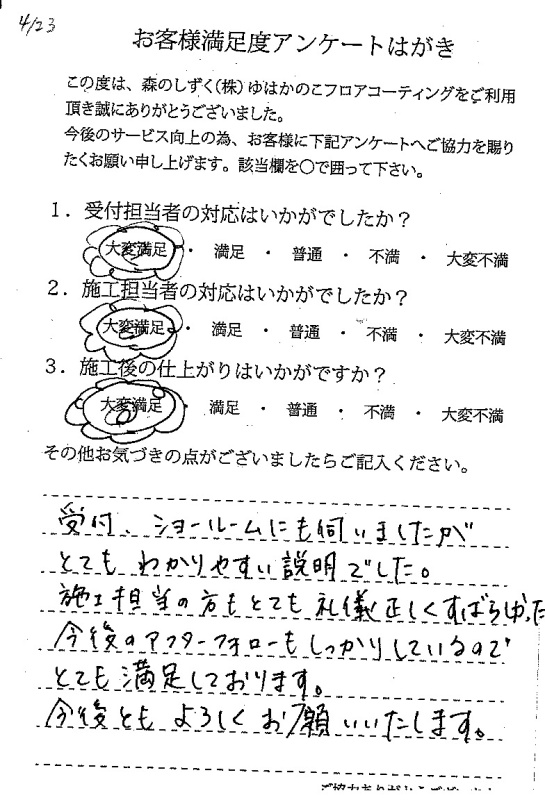 4/23
お客様満足度アンケートはがき
この度は、森のしずく(株)ゆはかのこフロアコーティングをご利用
頂き誠にありがとうございました。
今後のサービス向上の為、お客様に下記アンケートへご協力を賜り
たくお願い申し上げます。該当欄を〇で囲って下さい。
1．受付担当者の対応はいかがでしたか？
大変満足 ・ 満足 ・ 普通 ・ 不満 ・ 大変不満
2．施工担当者の対応はいかがでしたか？
大変満足 ・ 満足 ・ 普通 ・ 不満 ・ 大変不満
3．施工後の仕上がりはいかがですか？
大変満足 ・ 満足 ・ 普通 ・ 不満 ・ 大変不満
その他お気づきの点がございましたらご記入ください。
受付、ショールームにも伺いましたが
とてもわかりやすい説明でした。
施工担当の方もとても礼儀正しくすばらしかった
今後のアフターフォローもしっかりしているので
とても満足しております。
今後ともよろしくお願いいたします。
ご協力ありがとうござい